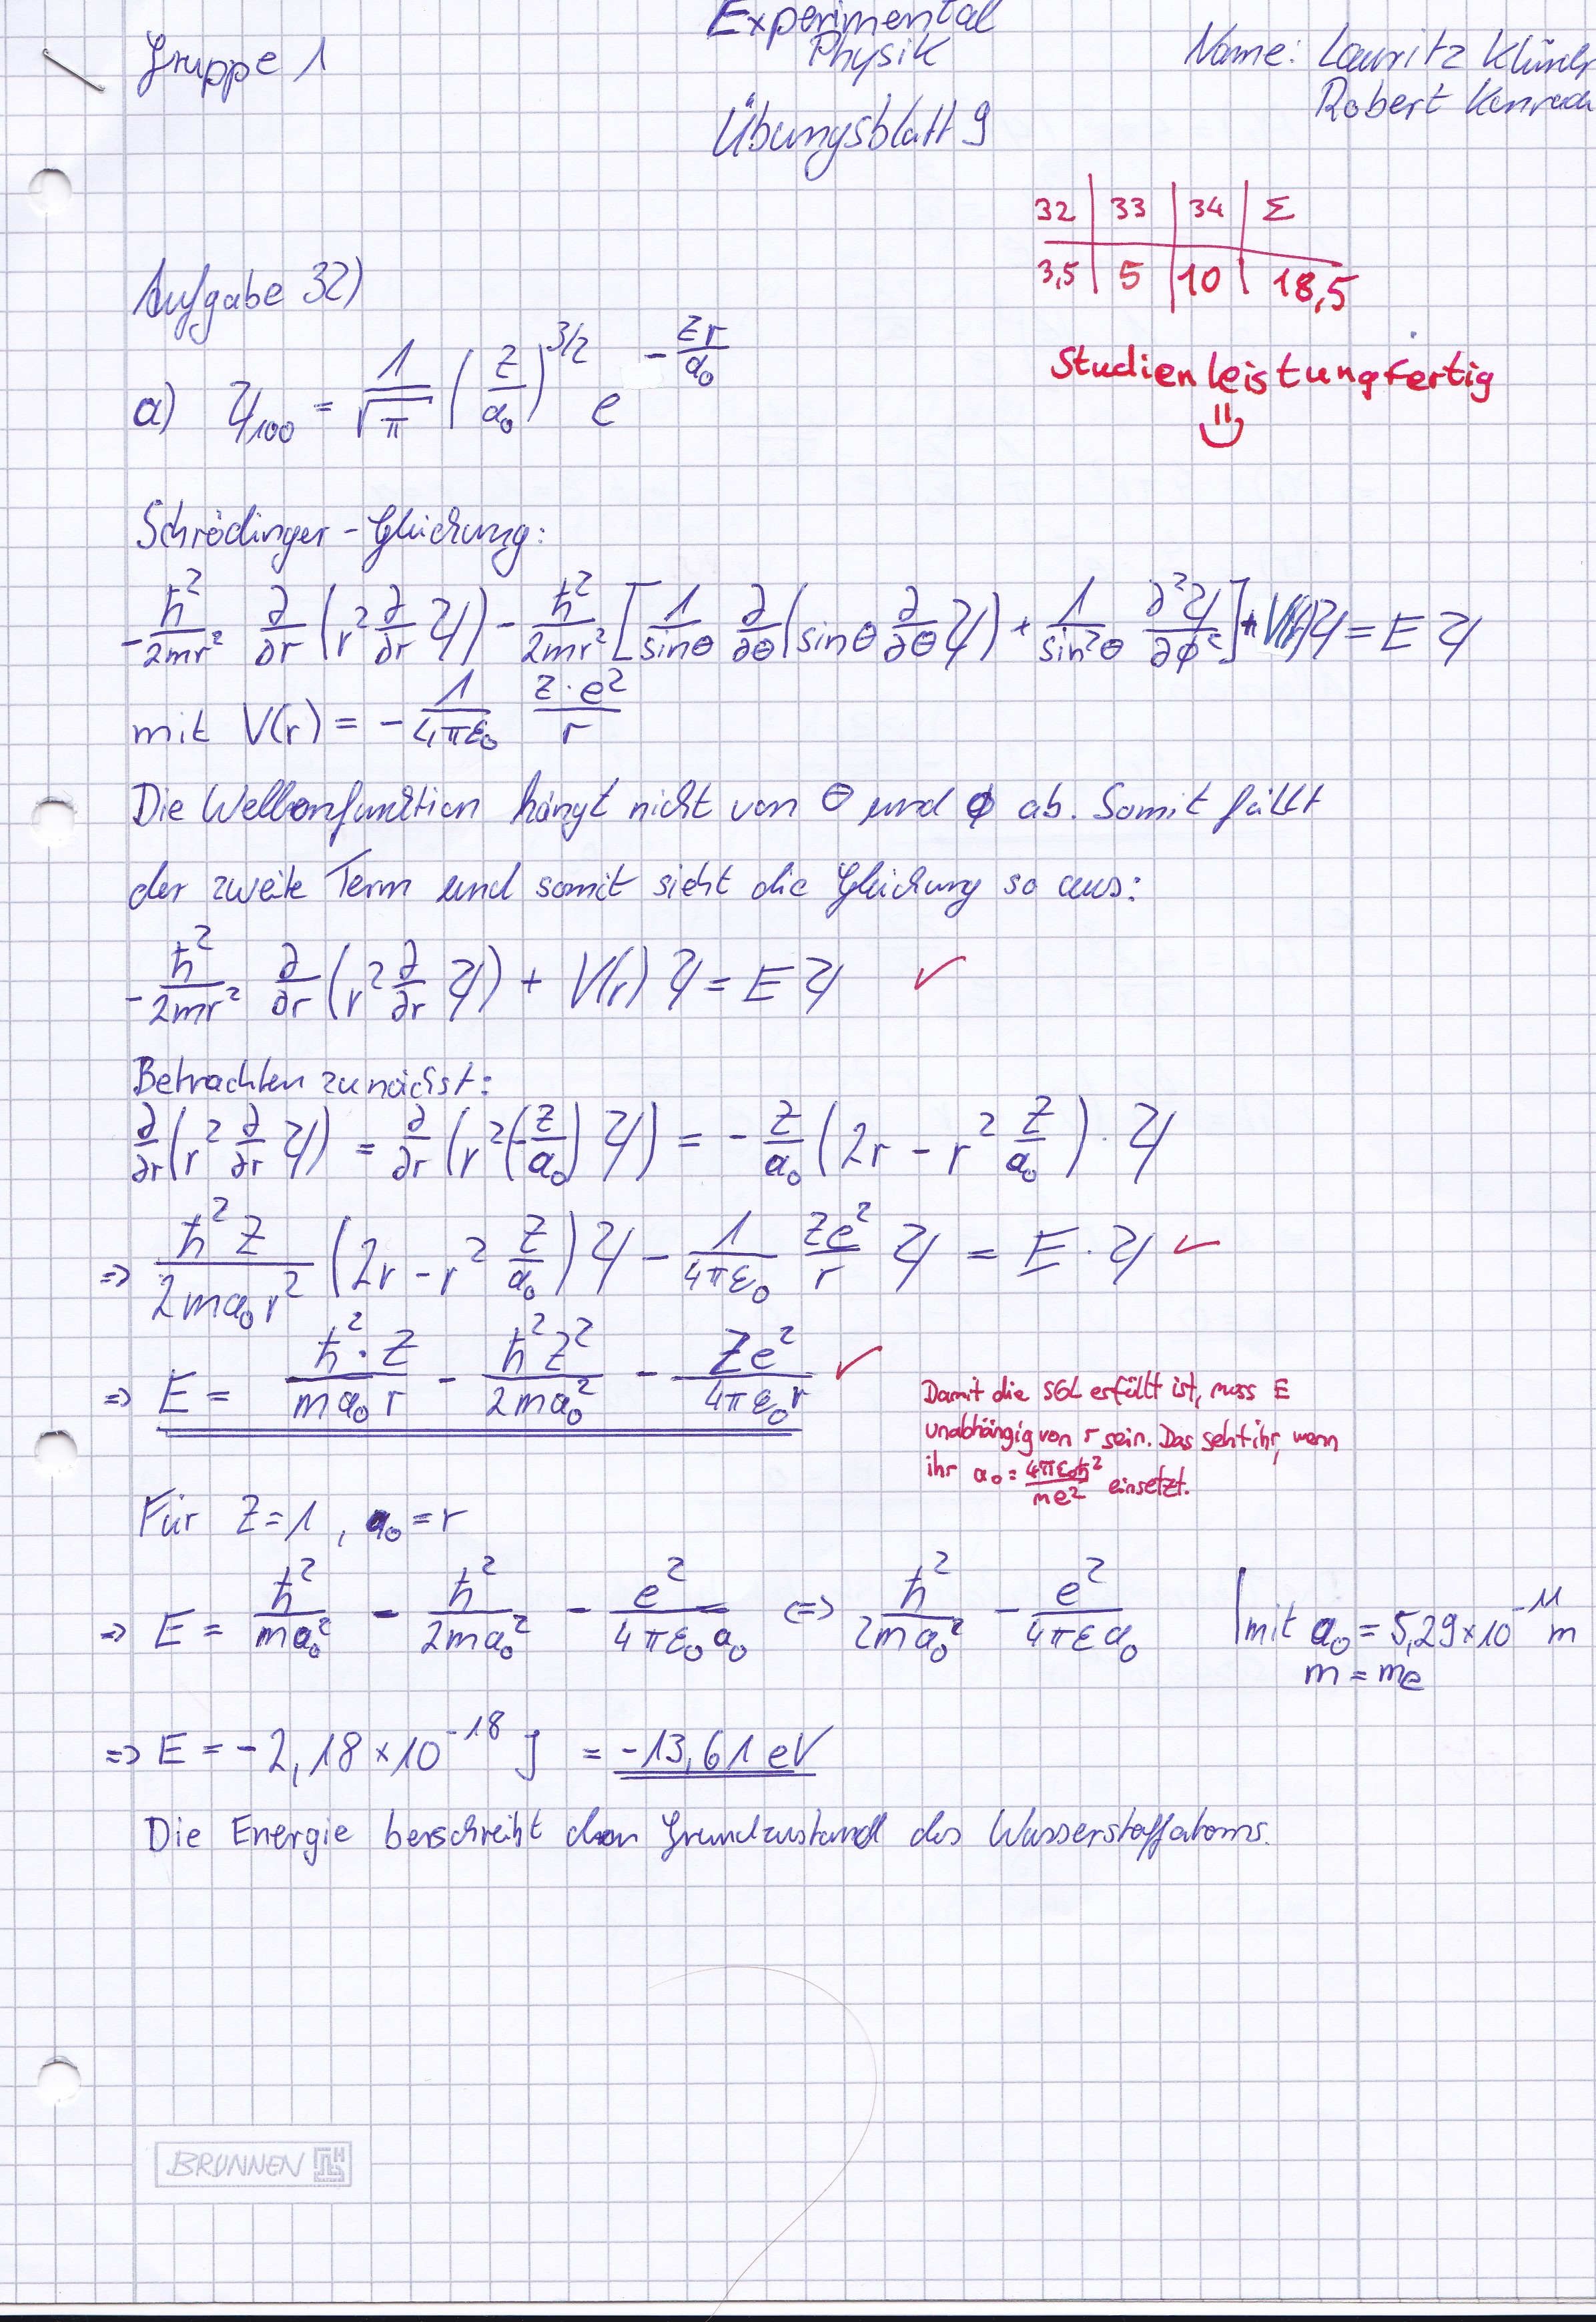 Experimental
Gruppe 1 Physik Name: Lauritz
Robert
Übungsblatt 9
32 | 33 | 34 | Σ
3,5 | 5 | 10 | 18,5
Studienleistung fertig
Aufgabe 32)
a) Ψ₁₀₀ = 1/√π (Z/a₀)^(3/2) e^(-Zr/a₀)
Schrödinger-Gleichung:
-ħ²/2mr² ∂/∂r (r² ∂/∂r Ψ) - ħ²/2mr² [1/sinθ ∂/∂θ (sinθ ∂/∂θ Ψ) + 1/sin²θ ∂²Ψ/∂ϕ²] + V(r)Ψ = E Ψ
mit V(r) = - 1/4πε₀ Z·e²/r
Die Wellenfunktion hängt nicht von θ und ϕ ab. Somit fällt
der zweite Term und somit sieht die Gleichung so aus:
-ħ²/2mr² ∂/∂r (r² ∂/∂r Ψ) + V(r) Ψ = E Ψ ✓
Betrachten zunächst:
∂/∂r (r² ∂/∂r Ψ) = ∂/∂r (r² (-Z/a₀) Ψ) = - Z/a₀ (2r - r² Z/a₀) · Ψ
⇒ ħ²Z/2ma₀r² (2r - r² Z/a₀) Ψ - 1/4πε₀ Ze²/r Ψ = E · Ψ ✓
⇒ E = ħ²·Z/ma₀r - ħ²Z²/2ma₀² - Ze²/4πε₀r ✓
Damit die SGL erfüllt ist, muss E
unabhängig von r sein. Das seht ihr, wenn
ihr a₀ = 4πε₀ħ²/me² einsetzt.
Für Z=1, a₀=r
⇒ E = ħ²/ma₀² - ħ²/2ma₀² - e²/4πε₀a₀ ⇔ ħ²/2ma₀² - e²/4πεa₀ | mit a₀ = 5,29×10⁻¹¹ m
m = mₑ
⇒ E = -2,18×10⁻¹⁸ J = -13,61 eV
Die Energie berschreibt den Grundzustand des Wasserstoffatoms.
BRUNNEN